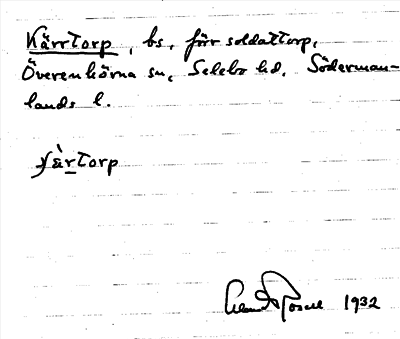 Kärrtorp, bs, förr soldattorp,
Överenhörna sn, Selebo hd. Söderman-
lands l.
1932